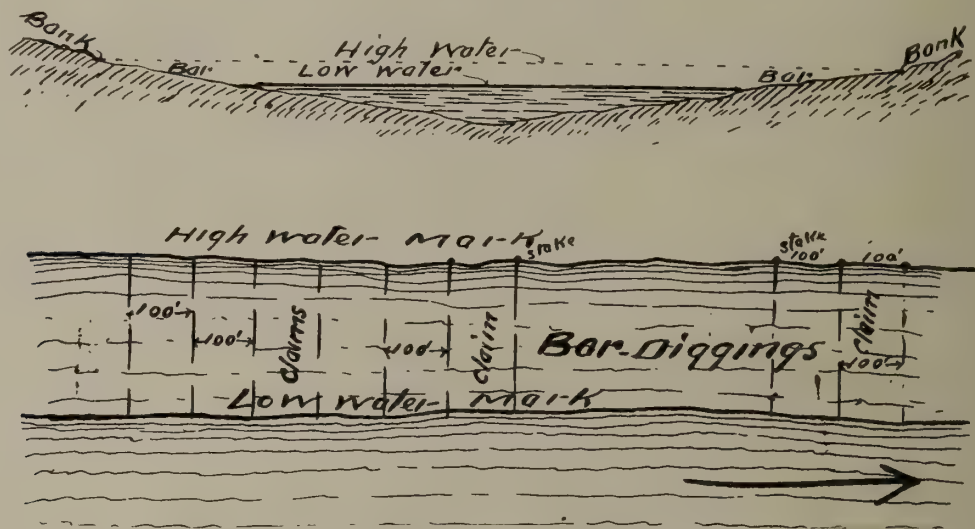 Bank
High Water
Bank
Low water
Bar
Bar
High water Mark
stake
stake
100'
100'
100'
100'
claims
100'
claim
Bar-Diggings
claim
100'
Low water Mark